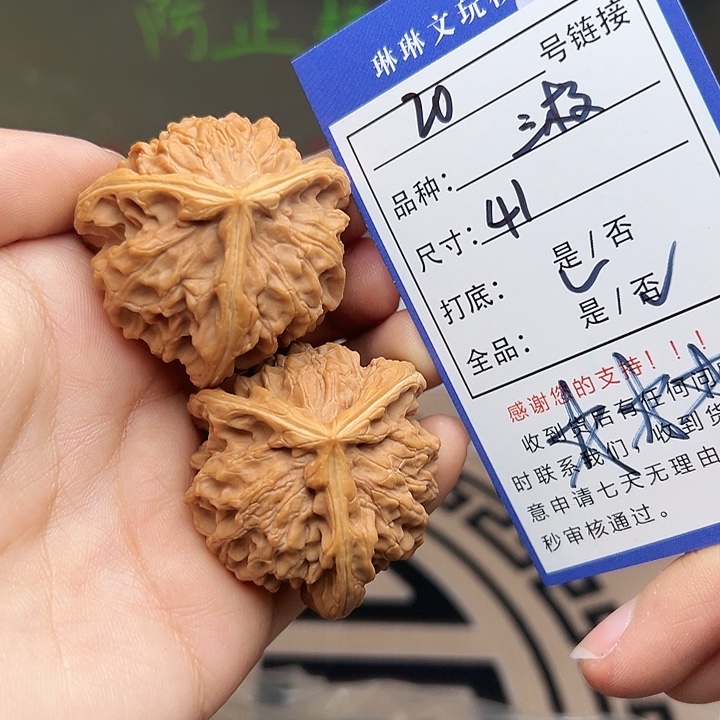 阿止
琳琳文玩
20 号链接
品种：三棱
尺寸：41
打底：是/否
全品：是/否
感谢您的支持！！！
收到货后有任何问
时联系我们，收到货
意申请七天无理由
秒审核通过。